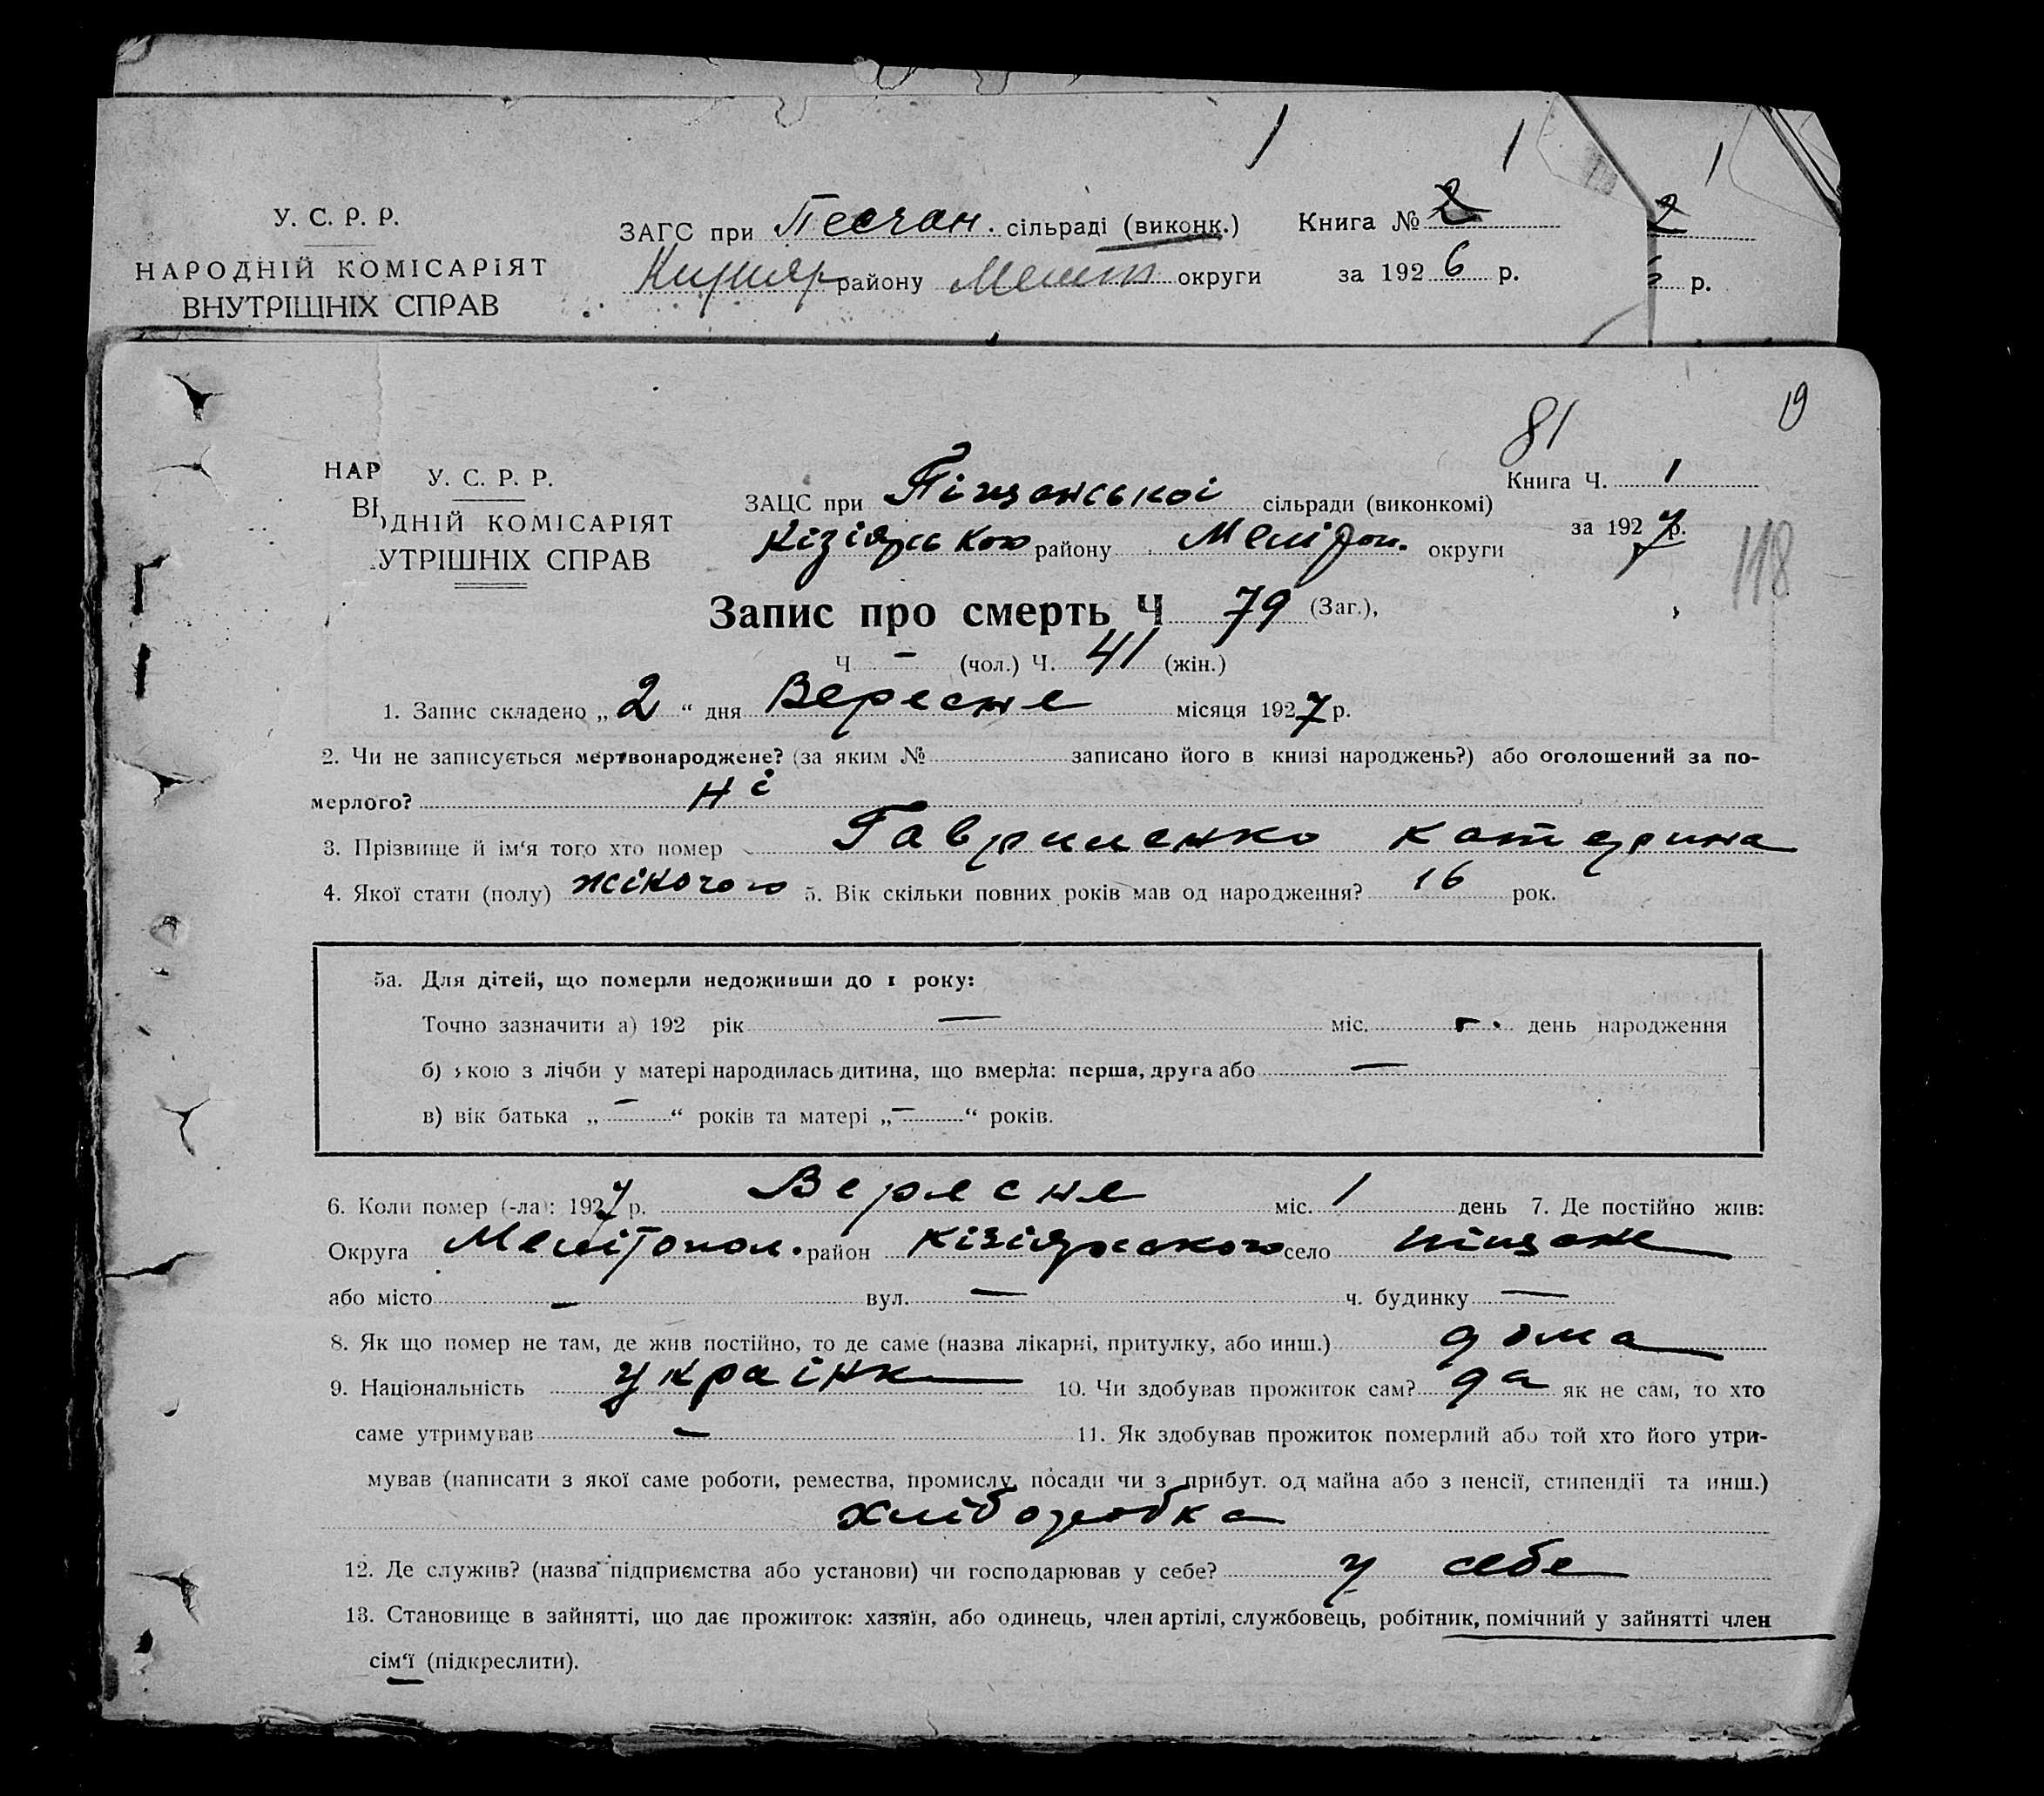 1 1 1
У. С. Р. Р.
НАРОДНІЙ КОМІСАРІЯТ
ВНУТРІШНІХ СПРАВ
ЗАГС при Песчан. сільраді (виконк.) Книга № 2 2
району Меліт округи за 1926 р. р.
81 19
НАР У. С. Р. Р.
ВН ОДНІЙ КОМІСАРІЯТ
УТРІШНІХ СПРАВ
ЗАЦС при Піщанської сільради (виконкомі) Книга Ч. 1
Кізіярського району Мелітоп. округи за 1927 р.
118
Запис про смерть Ч 79 (Заг.),
Ч - (чол.) Ч. 41 (жін.)
1. Запис складено „ 2 “ дня Вересне місяця 1927 р.
2. Чи не записується мертвонароджене? (за яким № записано його в книзі народжень?) або оголошений за по-
мерлого? Ні
3. Прізвище й ім‘я того хто помер Гавриленко Катерина
4. Якої стати (полу) жіночого 5. Вік скільки повних років мав од народження? 16 рок.
5а. Для дітей, що померли недоживши до 1 року:
Точно зазначити а) 192 рік — міс. день народження
б) якою з лічби у матері народилась дитина, що вмерла: перша, друга або —
в) вік батька „ — “ років та матері „ — “ років.
6. Коли помер (-ла): 1927 р. Вересне міс. 1 день 7. Де постійно жив:
Округа Мелітопол. район Кізіярського село Піщане
або місто — вул. — ч. будинку —
8. Як що помер не там, де жив постійно, то де саме (назва лікарні, притулку, або инш.) дома
9. Національність українк 10. Чи здобував прожиток сам? да як не сам, то хто
саме утримував — 11. Як здобував прожиток померлий або той хто його утри-
мував (написати з якої саме роботи, ремества, промислу, посади чи з прибут. од майна або з пенсії, стипендії та инш.)
хліборобка
12. Де служив? (назва підприємства або установи) чи господарював у себе? у себе
13. Становище в зайнятті, що дає прожиток: хазяїн, або одинець, член артілі, службовець, робітник, помічний у зайнятті член
сім‘ї (підкреслити).